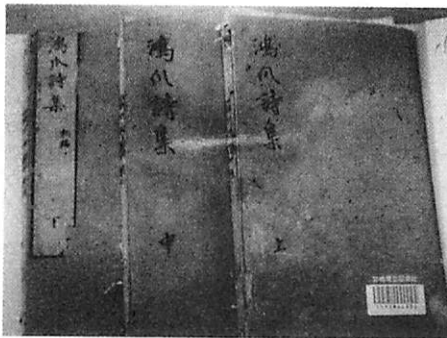 鴻爪詩集
上
鴻爪詩集
中
鴻爪詩集
下